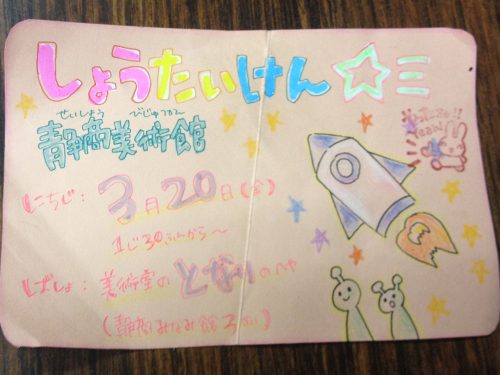 しょうたいけん☆ミ
せいしょう びじゅつかん
静商美術館
にちじ: 3月20日(金)
1じ30ぷんから〜
ばしょ: 美術室のとなりのへや
(静商みなみ館3かい)
Yeah!